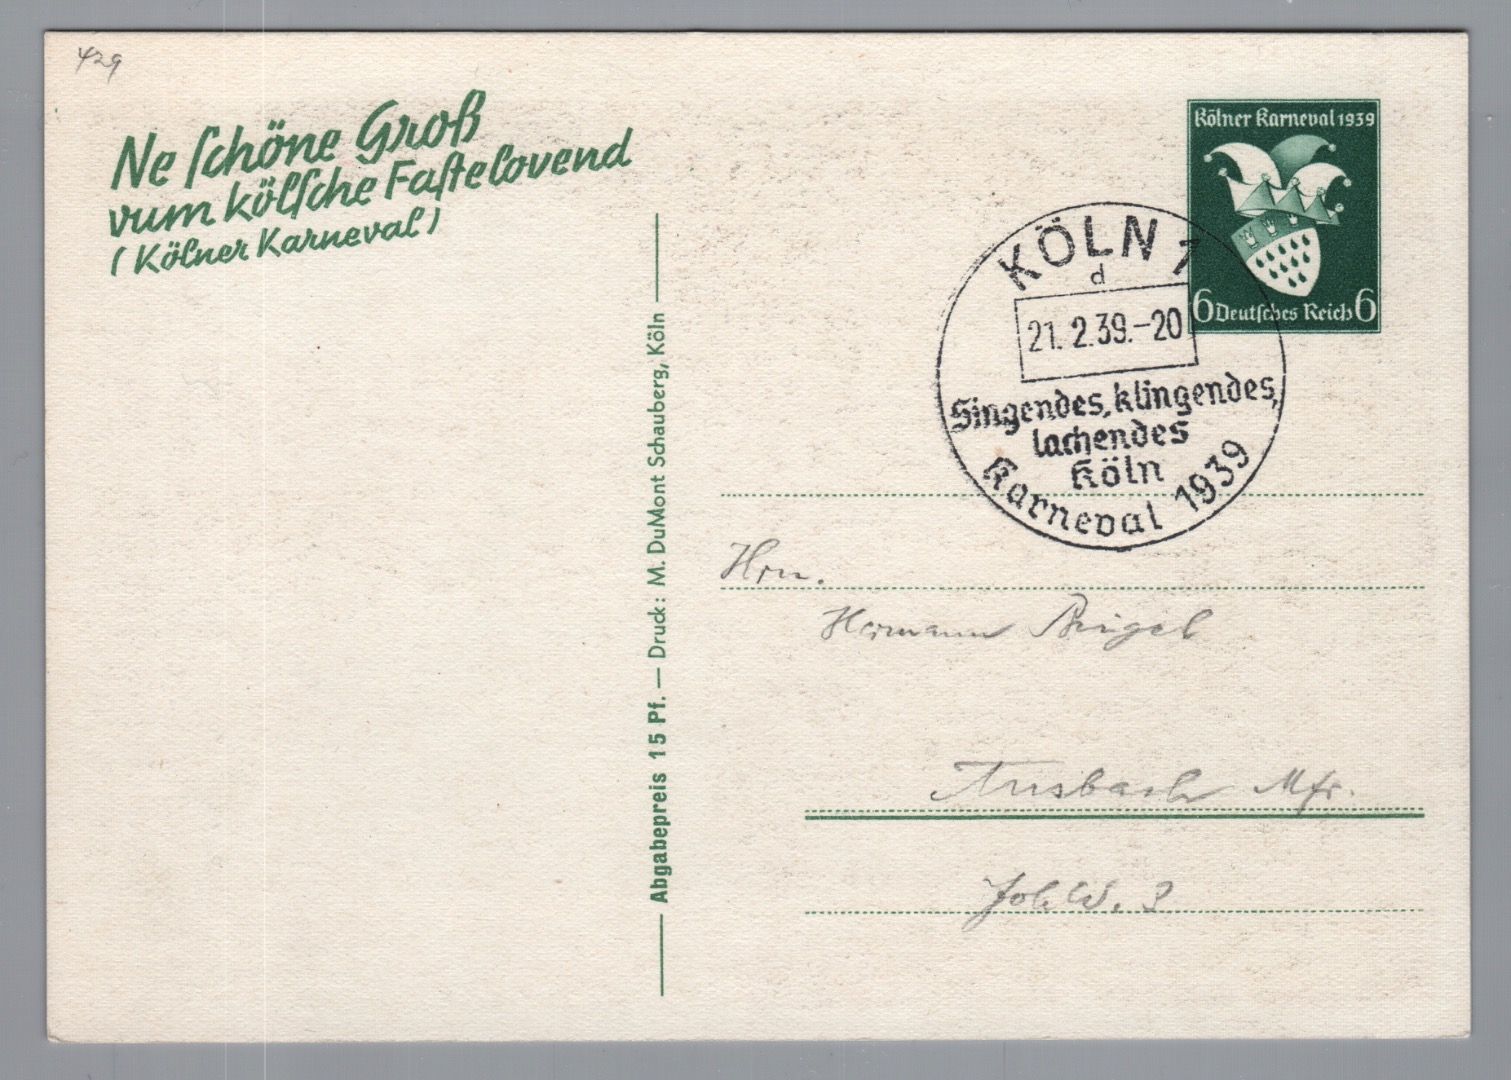 429
Ne schöne Groß
vum kölsche Fastelovend
(Kölner Karneval)
Abgabepreis 15 Pf. — Druck: M. DuMont Schauberg, Köln
Kölner Karneval 1939
6 Deutsches Reich 6
KÖLN 1
d
21.2.39.-20
Singendes, klingendes,
lachendes
Köln
Karneval 1939
Hrn.
Hermann
Ansbach Mfr.